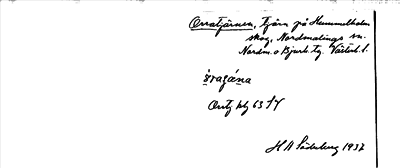 Orratjärnen, Tjärn på Hummelholm
skog, Nordmalings sn.
Nordm. o Bjurh. tg. Västerb. l.
òraǵána
Ortg bl 63
H A Söderberg 1937